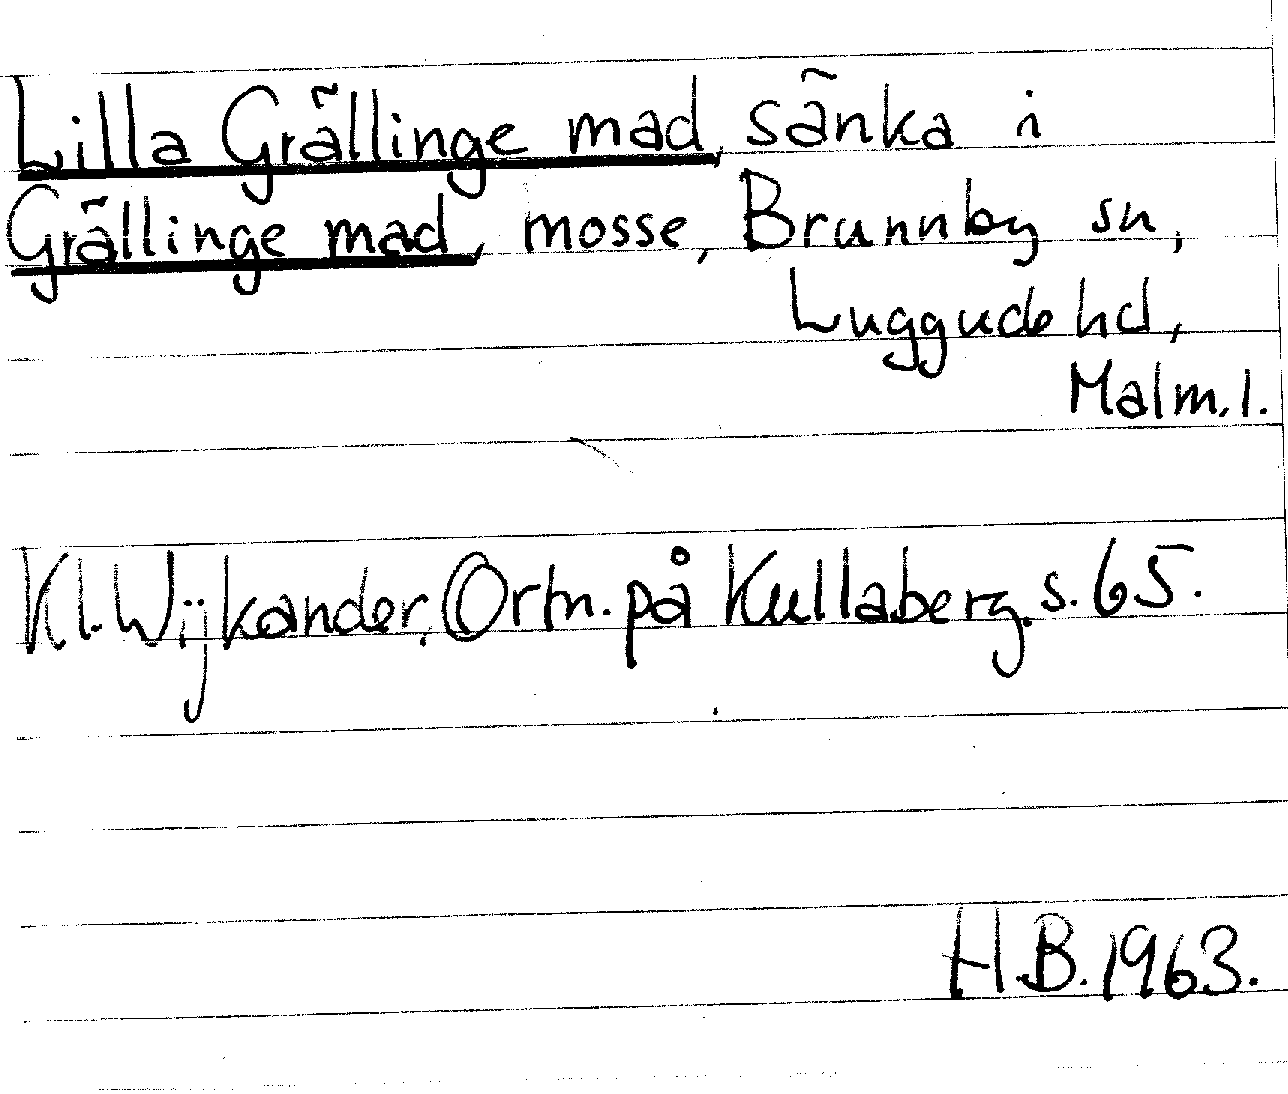 Lilla Grällinge mad, sänka i
Grällinge mad, mosse, Brunnby sn,
Luggude hd,
Malm. l.
Kl. Wijkander, Ortn. på Kullaberg. s. 65.
H.B. 1963.